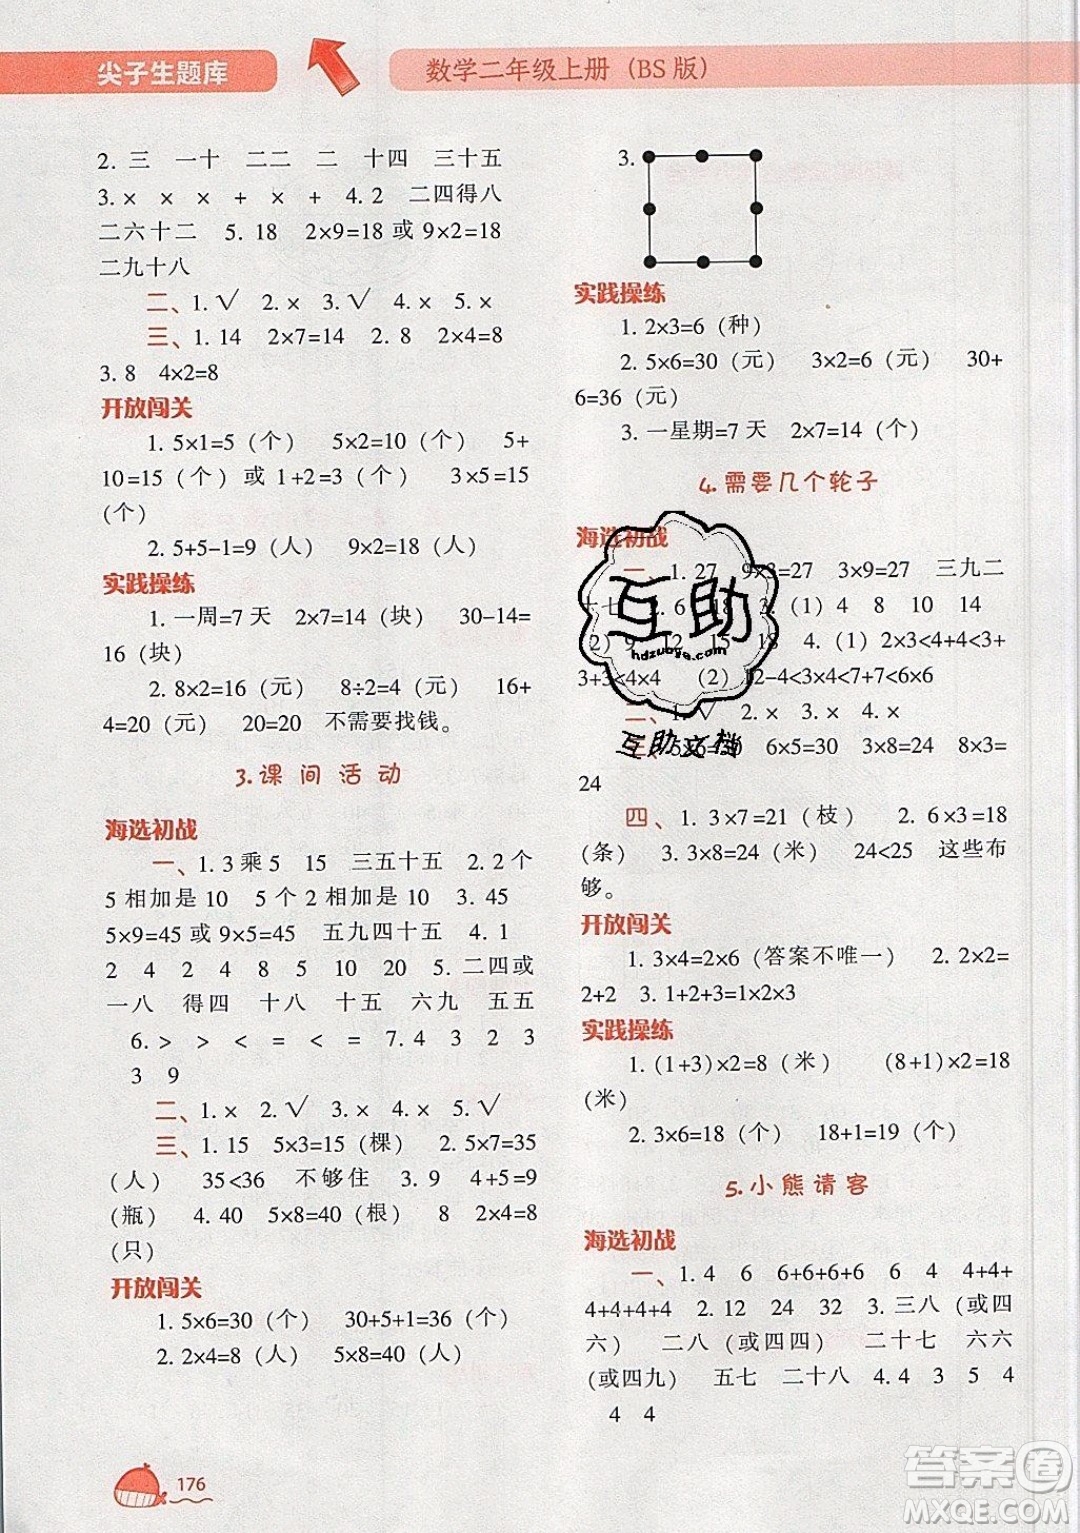 尖子生题库
数学二年级上册（BS 版）
2. 三 一十 二二 二 十四 三十五
3. × × × + × + 4. 2 二四得八
二六十二 5. 18 2×9=18 或 9×2=18
二九十八
二、1. √ 2. × 3. √ 4. × 5. ×
三、1. 14 2×7=14 2. 8 2×4=8
3. 8 4×2=8
开放闯关
1. 5×1=5（个） 5×2=10（个） 5+
10=15（个）或 1+2=3（个） 3×5=15
（个）
2. 5+5-1=9（人） 9×2=18（人）
实践操练
1. 一周=7 天 2×7=14（块） 30-14=
16（块）
2. 8×2=16（元） 8÷2=4（元） 16+
4=20（元） 20=20 不需要找钱。
3. 课间活动
海选初战
一、1. 3 乘 5 15 三五十五 2. 2 个
5 相加是 10 5 个 2 相加是 10 3. 45
5×9=45 或 9×5=45 五九四十五 4. 1
2 4 2 4 8 5 10 20 5. 二四或
一八 得四 十八 十五 六九 五五
6. > > < = < = 7. 4 3 2 3
3 9
二、1. × 2. √ 3. × 4. × 5. √
三、1. 15 5×3=15（棵） 2. 5×7=35
（人） 35<36 不够住 3. 4+5=9
（瓶） 4. 40 5×8=40（根） 8 2×4=8
（只）
开放闯关
1. 5×6=30（个） 30+5+1=36（个）
2. 2×4=8（人） 5×8=40（人）
176
3.
实践操练
1. 2×3=6（种）
2. 5×6=30（元） 3×2=6（元） 30+
6=36（元）
3. 一星期=7 天 2×7=14（个）
4. 需要几个轮子
海选初战
一、1. 27 9×3=27 3×9=27 三九二
十七 2. 6 18 3.（1）4 8 10 14
（2）9 12 15 18 4.（1）2×3<4+3+
3+3<4×4 （2）12-4<7+7<6×6
二、1. √ 2. × 3. × 4. ×
三、5×6=30 6×5=30 3×8=24 8×3=
24
四、1. 3×7=21（枝） 2. 6×3=18
（条） 3. 3×8=24（米） 24<25 这些布
够。
开放闯关
1. 3×4=2×6（答案不唯一） 2. 2×2=
2+2 3. 1+2+3=1×2×3
实践操练
1. (1+3)×2=8（米） (8+1)×2=18
（米）
2. 3×6=18（个） 18+1=19（个）
5. 小熊请客
海选初战
一、1. 4 6 6+6+6+6 6 4 4+4+
4+4+4+4 2. 12 24 32 3. 三八（或四
六） 二八（或四四） 二十七 六六
（或四九） 五七 二十八 4. 4 3 5 4
4 4
互助
hdzuoye.com
互助文档
答案圈
MXQE.COM